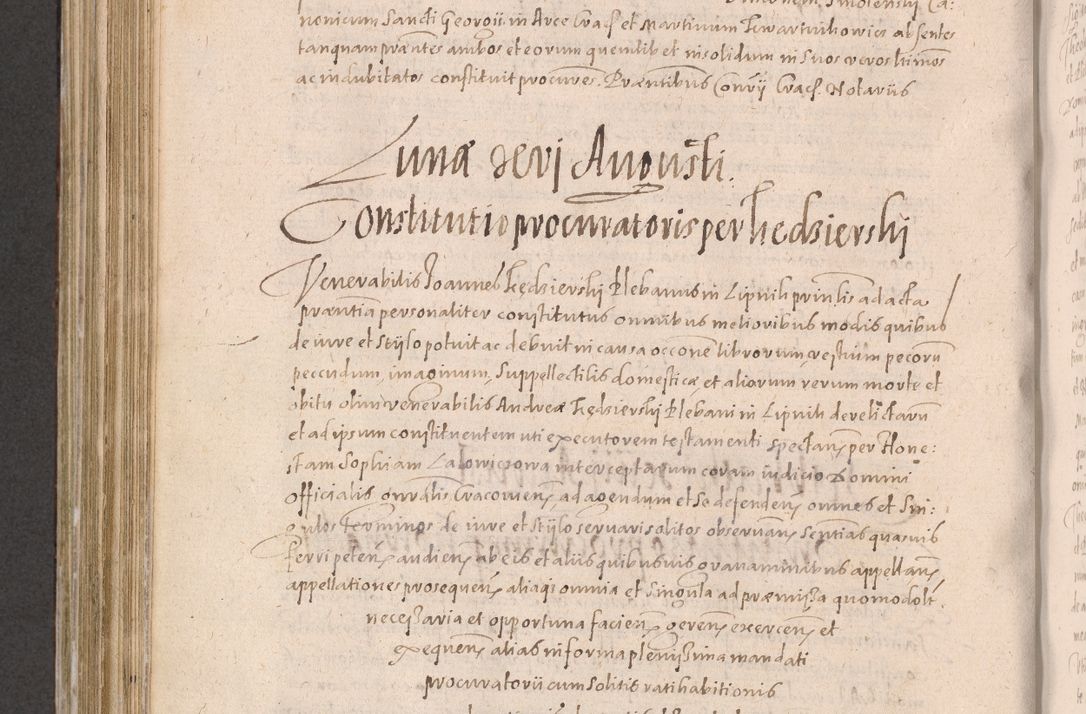 nonicum Sancti Georgii in Arce Cracoῆ et Martinum Kwartnikowicz absentes
tanquam præntes ambos et eorum quemlibet in solidum in Suos veros l̃timos
ac indubitatos constituit procures. Præntibus Conr̃ij Cracoῆ. Notariis
Lunæ XXVI Augusti.
Constitutio procuratoris per Kedzierski
Venerabilis Joannes Kędzierskij Plebanus in Lipnik prin̄lis ad acta
præntia personaliter constitutus omnibus melioribus modis quibus
de iure et stÿlo potuit ac debuit in causa occõne librorum, vestium pecorũ
peccudum, imaginum, Suppellectilis domesticæ et aliorum rerum morte et
obitu olim venerabilis Andreæ Kędzierskij Plebani in Lipnik derelictarũ
et ad ipsum constituentem uti executorem testamenti spectan̄ per Hone:
stam Sophiam Lalowiczowa interceptarum coram iudicio Domini
Officialis gnrãlis Cracovien̄, ad agendum et se defenden̄ omnes et Sin:
gulos Terminos de iure et Stÿlo servari solitos observan̄ Sentias quasvis
Ferri peten̄ audien̄ ab eis et aliis quibusvis gravaminibus appellan̄
appellationes prosequen̄, aliaq; omnia et Singula ad præmissa quomodolt
necessaria et opportuna facien̄ geren̄ exercen̄ et
exequen̄ alias in forma plenissima mandati
procuratorii cum Solitis ratihabitionis